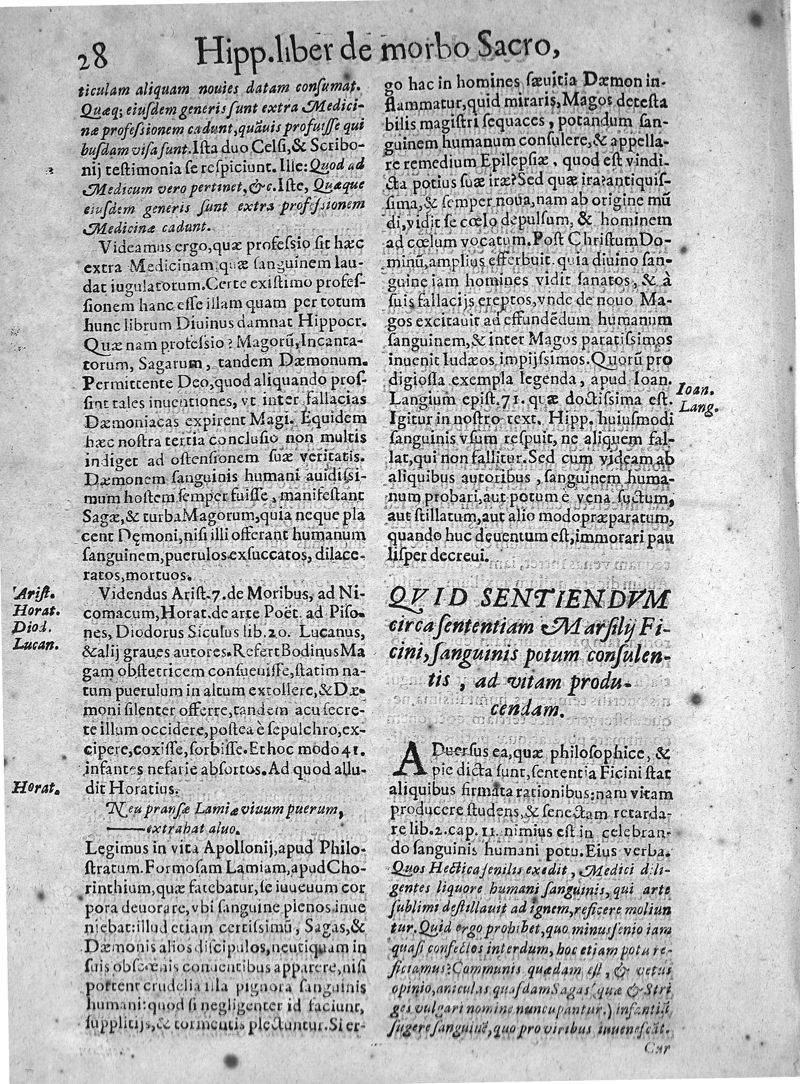 28 Hipp.liber de morbo Sacro,
ticulam aliquam nouies datam consumat.
Quæq; eiusdem generis sunt extra Medici-
næ professionem cadunt, quāuis profuisse qui
busdam visa sunt. Ista duo Celsi, & Scribo-
nij testimonia se respiciunt. Ille: Quod ad
Medicum vero pertinet, &c. Iste, Quæque
eiusdem generis sunt extra professionem
Medicinæ cadunt.
Videamus ergo, quæ professio sit hæc
extra Medicinam quæ sanguinem lau-
dat iugulatorum. Certe existimo profes-
sionem hanc esse illam quam per totum
hunc librum Diuinus damnat Hippocr.
Quæ nam professio? Magorū, Incanta-
torum, Sagarum, tandem Dæmonum.
Permittente Deo, quod aliquando pros-
sint tales inuentiones, vt inter fallacias
Dæmoniacas expirent Magi. Equidem
hæc nostra tertia conclusio non multis
indiget ad ostensionem suæ veritatis.
Dæmonem sanguinis humani auidissi-
mum hostem semper fuisse, manifestant
Sagæ, & turba Magorum, quia neque pla
cent Dęmoni, nisi illi offerant humanum
sanguinem, puerulos exsuccatos, dilace-
ratos, mortuos.
Arist.
Horat.
Diod.
Lucan.
Videndus Arist. 7. de Moribus, ad Ni-
comacum, Horat. de arte Poët. ad Piso-
nes, Diodorus Siculus lib. 20. Lucanus,
& alij graues autores. Refert Bodinus Ma
gam obstetricem consueuisse, statim na-
tum puerulum in altum extollere, & Dæ-
moni silenter offerre, tandem acu secre-
te illum occidere, postea è sepulchro, ex-
cipere, coxisse, sorbisse. Et hoc modo 41.
infantes nefarie absortos. Ad quod allu-
Horat.
dit Horatius.
Neu pransæ Lamiæ viuum puerum,
—— extrahat aluo.
Legimus in vita Apollonij, apud Philo-
stratum. Formosam Lamiam, apud Cho-
rinthium, quæ fatebatur, se iuueuum cor
pora deuorare, vbi sanguine plenos inue
niebat: illud etiam certissimū, Sagas, &
Dæmonis alios discipulos, neutiquam in
suis obscænis conuentibus apparere, nisi
portent crudelia illa pignora sanguinis
humani: quod si negligenter id faciunt,
supplicijs, & tormentis plectuntur. Si er-
go hac in homines sæuitia Dæmon in-
flammatur, quid miraris, Magos detesta
bilis magistri sequaces, potandum san-
guinem humanum consulere, & appella-
re remedium Epilepsiæ, quod est vindi-
cta potius suæ iræ? Sed quæ ira? antiquis-
sima, & semper noua, nam ab origine mū
di, vidit se cœlo depulsum, & hominem
ad cœlum vocatum. Post Christum Do-
minū, amplius efferbuit. quia diuino san-
guine iam homines vidit sanatos, & à
suis fallacijs ereptos, vnde de nouo Ma-
gos excitauit ad effundēdum humanum
sanguinem, & inter Magos paratissimos
inuenit Iudæos impijssimos. Quorū pro
digiosa exempla legenda, apud Ioan.
Langium epist. 71. quæ doctissima est.
Ioan.
Lang.
Igitur in nostro text. Hipp. huiusmodi
sanguinis vsum respuit, ne aliquem fal-
lat, qui non fallitur. Sed cum videam ab
aliquibus autoribus, sanguinem huma-
num probari, aut potum è vena suctum,
aut stillatum, aut alio modo præparatum,
quando huc deuentum est, immorari pau
lisper decreui.
QVID SENTIENDVM
circa sententiam Marsilij Fi
cini, sanguinis potum consulen-
tis, ad vitam produ-
cendam.
ADuersus ea, quæ philosophice, &
pie dicta sunt, sententia Ficini stat
aliquibus firmata rationibus: nam vitam
producere studens, & senectam retarda-
re lib. 2. cap. 11. nimius est in celebran-
do sanguinis humani potu. Eius verba.
Quos Hectica senilis exedit, Medici dili-
gentes liquore humani sanguinis, qui arte
sublimi destillauit ad ignem, reficere moliun
tur. Quid ergo prohibet, quo minus senio iam
quasi confectos interdum, hoc etiam potu re-
ficiamus? Communis quædam est, & vetus
opinio, aniculas quasdam Sagas (quæ & Stri
ges vulgari nomine nuncupantur.) infantiū
sugere sanguinē, quo pro viribus iuuenescāt.
Cur